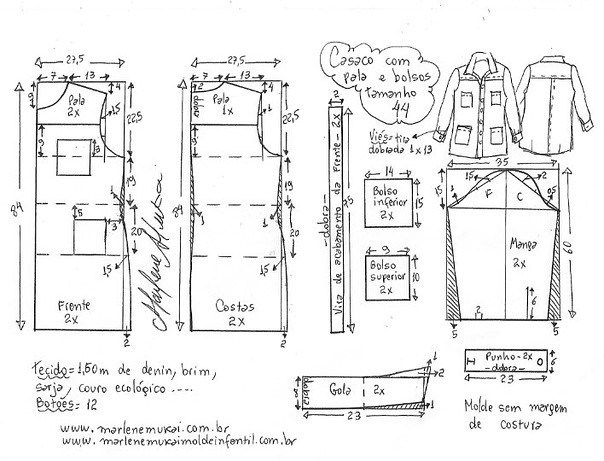 27,5
7
13
4
9
Pala
2x
1,5
1
22,5
9
3
19
84
1
5
3
20
1,5
Frente
2x
2
Marlene Mukai
27,5
7
13
4
2
dobra
Pala
1x
1
22,5
19
84
1
1
20
1,5
Costas
2x
2
Casaco com
pala e bolsos
tamanho
44
Viés=tira
dobrada 1x13
2
-dobra-
Vira de acabamento da Frente - 2x
14
Bolso
inferior
2x
15
9
Bolso
superior
2x
10
35
1,5
2
1
F
C
0,5
Manga
2x
60
2
6
5
5
Punho-2x
-dobra-
6
23
dobra
8
Gola
2x
1
2
1
23
Molde sem margem
de costura
Tecido=1,50m de denin, brim,
sarja, couro ecológico ....
Botões= 12
www.marlenemukai.com.br
www.marlenemukaimoldeinfantil.com.br